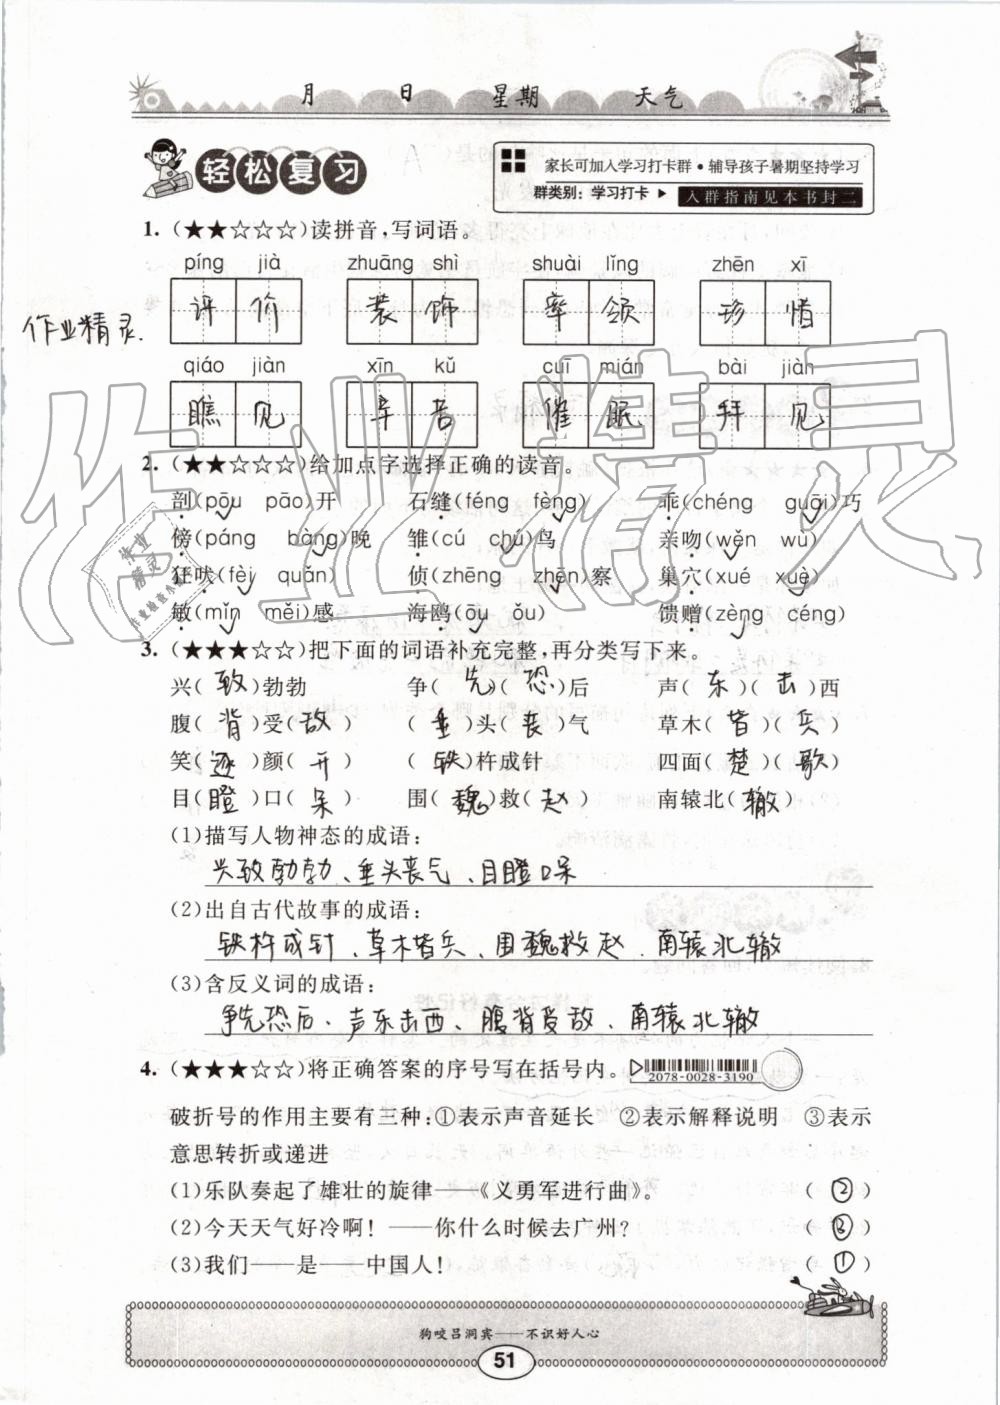 月 日 星期 天气
轻松复习
家长可加入学习打卡群·辅导孩子暑期坚持学习
群类别：学习打卡 ▶ 入群指南见本书封二
1. (★★☆☆☆)读拼音,写词语。
píng jià zhuāng shì shuài lǐng zhēn xī
评价 装饰 率领 珍惜
作业精灵.
qiáo jiàn xīn kǔ cuī mián bài jiàn
瞧见 辛苦 催眠 拜见
2. (★★☆☆☆)给加点字选择正确的读音。
剖(pōu pāo)开 石缝(féng fèng) 乖(chéng guāi)巧
傍(páng bàng)晚 雏(cú chú)鸟 亲吻(wěn wù)
狂吠(fèi quǎn) 侦(zhēng zhēn)察 巢穴(xué xuè)
敏(mǐn měi)感 海鸥(ōu ǒu) 馈赠(zèng céng)
3. (★★★☆☆)把下面的词语补充完整,再分类写下来。
兴(致)勃勃 争(先)(恐)后 声(东)(击)西
腹(背)受(敌) (垂)头(丧)气 草木(皆)(兵)
笑(逐)颜(开) (铁)杵成针 四面(楚)(歌)
目(瞪)口(呆) 围(魏)救(赵) 南辕北(辙)
(1)描写人物神态的成语:
兴致勃勃、垂头丧气、目瞪口呆
(2)出自古代故事的成语:
铁杵成针、草木皆兵、围魏救赵、南辕北辙
(3)含反义词的成语:
争先恐后、声东击西、腹背受敌、南辕北辙
4. (★★★☆☆)将正确答案的序号写在括号内。
2078-0028-3190
破折号的作用主要有三种:①表示声音延长 ②表示解释说明 ③表示
意思转折或递进
(1)乐队奏起了雄壮的旋律——《义勇军进行曲》。 (②)
(2)今天天气好冷啊！——你什么时候去广州? (③)
(3)我们——是——中国人! (①)
狗咬吕洞宾——不识好人心
51
作业精灵